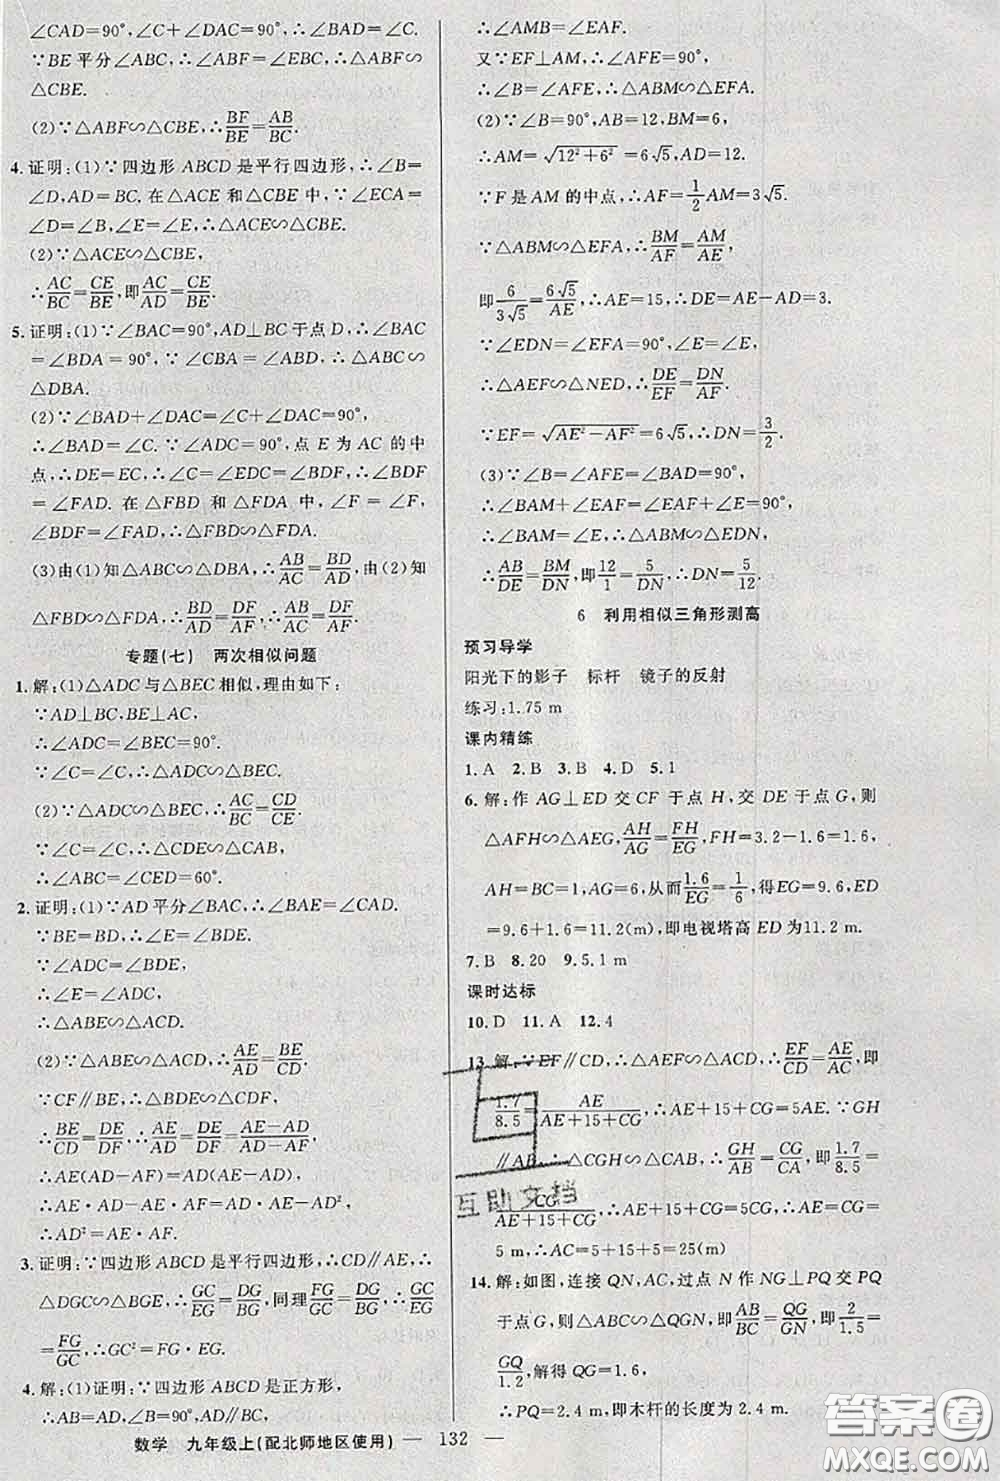 ∠CAD=90°,∴∠C+∠DAC=90°,∴∠BAD=∠C.
∵BE平分∠ABC,∴∠ABF=∠EBC,∴△ABF∽
△CBE.
(2)∵△ABF∽△CBE,∴BF/BE=AB/BC.
4.证明:(1)∵四边形ABCD是平行四边形,∴∠B=
∠D,AD=BC.在△ACE和△CBE中,∵∠ECA
=∠D=∠B,∠E=∠E,∴△ACE∽△CBE.
(2)∵△ACE∽△CBE,
∴AC/BC=CE/BE,即AC/AD=CE/BE.
5.证明:(1)∵∠BAC=90°,AD⊥BC于点D,∴∠BAC
=∠BDA=90°,∵∠CBA=∠ABD,∴△ABC∽
△DBA.
(2)∵∠BAD+∠DAC=∠C+∠DAC=90°,
∴∠BAD=∠C.∵∠ADC=90°,点E为AC的中
点,∴DE=EC,∴∠C=∠EDC=∠FDB,∴∠FDB
=∠FAD.在△FBD和△FDA中,∠F=∠F,
∠BDF=∠FAD,∴△FBD∽△FDA.
(3)由(1)知△ABC∽△DBA,∴AB/AC=BD/AD,由(2)知
△FBD∽△FDA,∴BD/AD=DF/AF,∴AB/AC=DF/AF.
专题(七) 两次相似问题
1.解:(1)△ADC与△BEC相似,理由如下:
∵AD⊥BC,BE⊥AC,
∴∠ADC=∠BEC=90°.
∵∠C=∠C,∴△ADC∽△BEC.
(2)∵△ADC∽△BEC,∴AC/BC=CD/CE.
∵∠C=∠C,∴△CDE∽△CAB,
∴∠ABC=∠CED=60°.
2.证明:(1)∵AD平分∠BAC,∴∠BAE=∠CAD.
∵BE=BD,∴∠E=∠BDE.
∵∠ADC=∠BDE,
∴∠E=∠ADC,
∴△ABE∽△ACD.
(2)∵△ABE∽△ACD,∴AE/AD=BE/CD.
∵CF∥BE,∴△BDE∽△CDF,
∴BE/CD=DE/DF,∴AE/AD=DE/DF=AE-AD/AD-AF,
∴AE(AD-AF)=AD(AE-AD),
∴AE·AD-AE·AF=AD·AE-AD²,
∴AD²=AE·AF.
3.证明:∵四边形ABCD是平行四边形,∴CD∥AE,∴
△DGC∽△BGE,∴GC/EG=DG/BG,同理FG/GC=DG/BG,∴GC/EG=
FG/GC,∴GC²=FG·EG.
4.解:(1)证明:∵四边形ABCD是正方形,
∴AB=AD,∠B=90°,AD∥BC,
∴∠AMB=∠EAF.
又∵EF⊥AM,∴∠AFE=90°,
∴∠B=∠AFE,∴△ABM∽△EFA.
(2)∵∠B=90°,AB=12,BM=6,
∴AM=√12²+6²=6√5,AD=12.
∵F是AM的中点,∴AF=1/2AM=3√5.
∵△ABM∽△EFA,∴BM/AF=AM/AE,
即6/3√5=6√5/AE,∴AE=15,∴DE=AE-AD=3.
∵∠EDN=∠EFA=90°,∠E=∠E,
∴△AEF∽△NED,∴DE/EF=DN/AF.
∵EF=√AE²-AF²=6√5,∴DN=3/2.
(3)∵∠B=∠AFE=∠BAD=90°,
∴∠BAM+∠EAF=∠EAF+∠E=90°,
∴∠BAM=∠E,∴△ABM∽△EDN,
∴AB/DE=BM/DN,即12/1=5/DN,∴DN=5/12.
6 利用相似三角形测高
预习导学
阳光下的影子 标杆 镜子的反射
练习:1.75 m
课内精练
1.A 2.B 3.B 4.D 5.1
6.解:作AG⊥ED交CF于点H,交DE于点G,则
△AFH∽△AEG,AH/AG=FH/EG,FH=3.2-1.6=1.6,
AH=BC=1,AG=1+5=6,从而1.6/EG=1/6,得EG=9.6,ED
=9.6+1.6=11.2(m),即电视塔高ED为11.2 m.
7.B 8.20 9.5.1 m
课时达标
10.D 11.A 12.4
13.解:∵EF∥CD,∴△AEF∽△ACD,∴EF/CD=AE/AC,即
1.7/8.5=AE/AE+15+CG,∴AE+15+CG=5AE.∵GH
∥AB,∴△CGH∽△CAB,∴GH/AB=CG/CA,即1.7/8.5=
CG/AE+15+CG,∴AE+15+CG=5CG,∴AE=CG=
5 m,∴AC=5+15+5=25(m)
14.解:如图,连接QN,AC,过点N作NG⊥PQ交PQ
于点G,则△ABC∽△QGN,即AB/BC=QG/GN,即2/1.5=
GQ/1.2,解得GQ=1.6,
∴PQ=2.4 m,即木杆的长度为2.4 m.
互助文档
数学 九年级上(配北师地区使用) — 132 —
答案圈
MXQE.COM